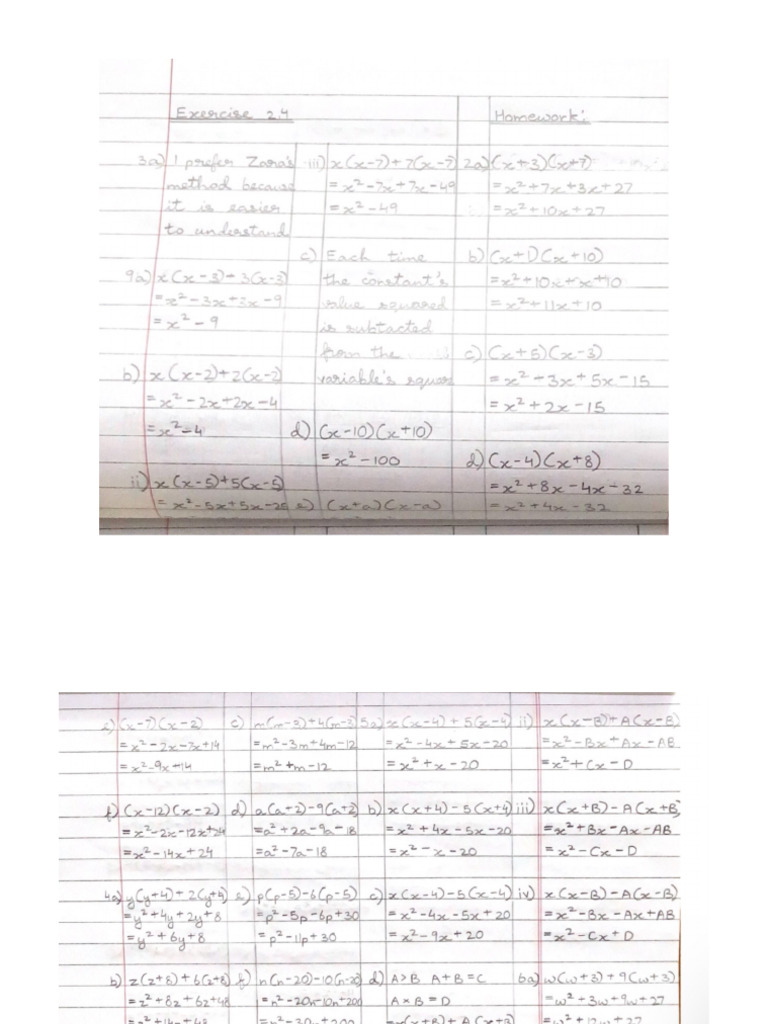 Exercise 2.4
3a) I prefer Zara's
method because
it is easier
to understand
9a) x(x-3)+3(x-3)
= x²-3x+3x-9
= x²-9
b) x(x-2)+2(x-2)
= x²-2x+2x-4
= x²-4
ii) x(x-5)+5(x-5)
= x²-5x+5x-25
iii) x(x-7)+7(x-7)
= x²-7x+7x-49
= x²-49
c) Each time
the constant's
value squared
is subtacted
from the
variable's squar
d) (x-10)(x+10)
= x²-100
e) (x+a)(x-a)
Homework:
2a) (x+3)(x+7)
= x²+7x+3x+27
= x²+10x+27
b) (x+1)(x+10)
= x²+10x+x+10
= x²+11x+10
c) (x+5)(x-3)
= x²-3x+5x-15
= x²+2x-15
d) (x-4)(x+8)
= x²+8x-4x-32
= x²+4x-32
e) (x-7)(x-2)
= x²-2x-7x+14
= x²-9x+14
f) (x-12)(x-2)
= x²-2x-12x+24
= x²-14x+24
4a) y(y+4)+2(y+4)
= y²+4y+2y+8
= y²+6y+8
b) z(z+8)+6(z+8)
= z²+8z+6z+48
= z²+14z+48
c) m(m-3)+4(m-3)
= m²-3m+4m-12
= m²+m-12
d) a(a+2)-9(a+2)
= a²+2a-9a-18
= a²-7a-18
e) p(p-5)-6(p-5)
= p²-5p-6p+30
= p²-11p+30
f) n(n-20)-10(n-20)
= n²-20n-10n+200
= n²-30n+200
5a) x(x-4)+5(x-4)
= x²-4x+5x-20
= x²+x-20
b) x(x+4)-5(x+4)
= x²+4x-5x-20
= x²-x-20
c) x(x-4)-5(x-4)
= x²-4x-5x+20
= x²-9x+20
d) A>B A+B=C
A×B=D
= x(x+B)+A(x+B)
ii) x(x-B)+A(x-B)
= x²-Bx+Ax-AB
= x²+Cx-D
iii) x(x+B)-A(x+B)
= x²+Bx-Ax-AB
= x²-Cx-D
iv) x(x-B)-A(x-B)
= x²-Bx-Ax+AB
= x²-Cx+D
6a) w(w+3)+9(w+3)
= w²+3w+9w+27
= w²+12w+27